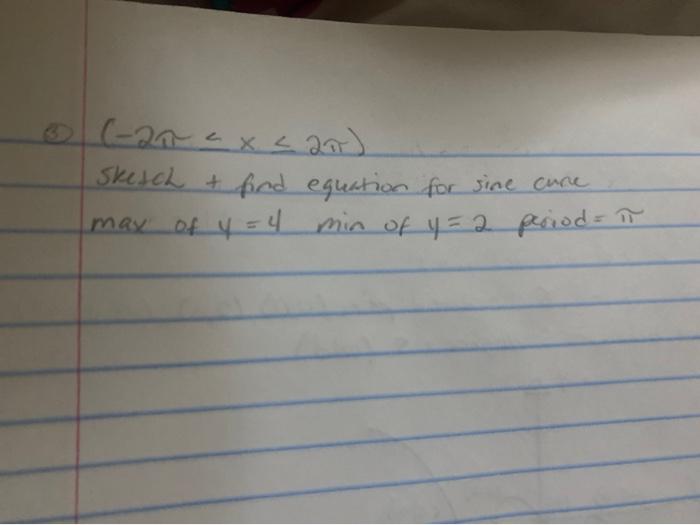 ③ (-2π ≤ x ≤ 2π)
sketch + find equation for sine curve
max of y = 4 min of y = 2 period = π